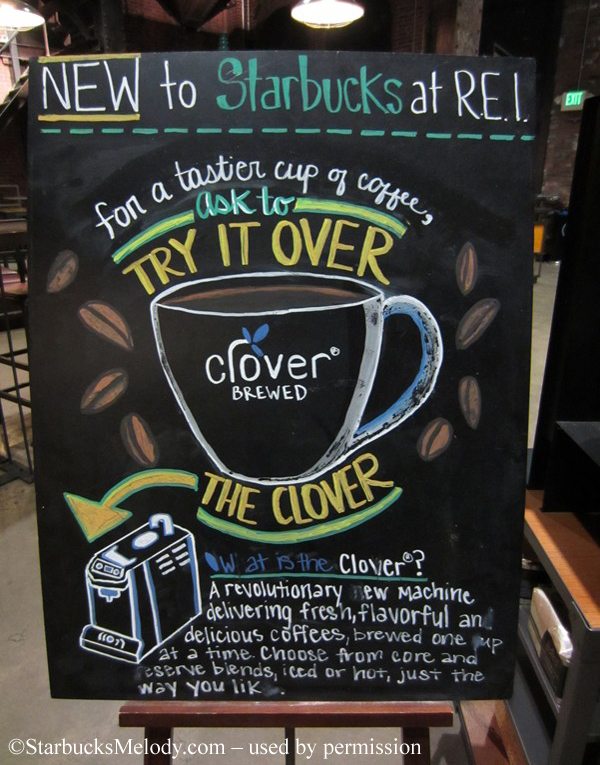 NEW to Starbucks at R.E.I.
EXIT
for a tastier cup of coffee,
ask to
TRY IT OVER
clover®
BREWED
THE CLOVER
W at is the Clover®?
A revolutionary ew machine
delivering fresh, flavorful an
delicious coffees, brewed one up
at a time. Choose from core and
eserve blends, iced or hot, just the
way you lik .
©StarbucksMelody.com – used by permission